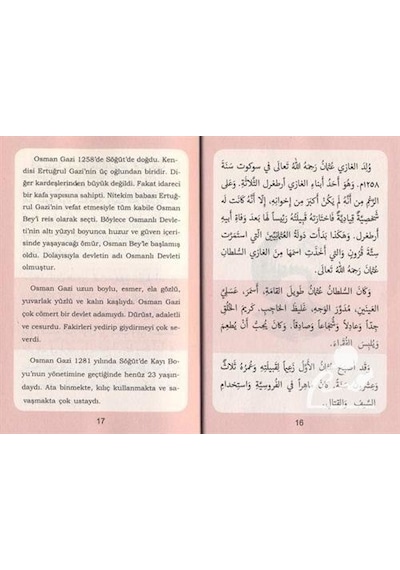 Osman Gazi 1258'de Söğüt'de doğdu. Ken-
disi Ertuğrul Gazi'nin üç oğlundan biridir. Di-
ğer kardeşlerinden büyük değildi. Fakat idareci
bir kafa yapısına sahipti. Nitekim babası Ertuğ-
rul Gazi'nin vefat etmesiyle tüm kabile Osman
Bey'i reis olarak seçti. Böylece Osmanlı Devle-
ti'nin altı yüzyıl boyunca huzur ve güven içeri-
sinde yaşayacağı ömür, Osman Bey'le başlamış
oldu. Dolayısıyla devletin adı Osmanlı Devleti
olmuştur.
Osman Gazi uzun boylu, esmer, ela gözlü,
yuvarlak yüzlü ve kalın kaşlıydı. Osman Gazi
çok cömert bir devlet adamıydı. Dürüst, adaletli
ve cesurdu. Fakirleri yedirip giydirmeyi çok se-
verdi.
Osman Gazi 1281 yılında Söğüt'de Kayı Bo-
yu'nun yönetimine geçtiğinde henüz 23 yaşın-
daydı. Ata binmekte, kılıç kullanmakta ve sa-
vaşmakta çok ustaydı.
17
وُلِدَ الغَازِي عُثْمَانُ رَحِمَهُ اللّٰهُ تَعَالَى فِي سوكوت سَنَةَ
١٢٥٨م. وَهُوَ أَحَدُ أَبْنَاءِ الغَازِي أرطغرل الثَّلَاثَةِ. وَعَلَى
الرَّغْمِ مِنْ أَنَّهُ لَمْ يَكُنْ أَكْبَرَ مِنْ إِخْوَانِهِ، إِلَّا أَنَّهُ كَانَتْ لَهُ
شَخْصِيَّةٌ قِيَادِيَّةٌ فَاخْتَارَتْهُ قَبِيلَتُهُ رَئِيساً لَهَا بَعْدَ وَفَاةِ أَبِيهِ
أرطغرل. وَهَكَذَا بَدَأَتْ دَوْلَةُ العُثْمَانِيِّينَ الَّتِي اسْتَمَرَّتْ
سِتَّةَ قُرُونٍ وَالَّتِي أَخَذَتِ اسْمَهَا مِنَ الغَازِي السُّلْطَانِ
عُثْمَانَ رَحِمَهُ اللّٰهُ تَعَالَى.
وَكَانَ السُّلْطَانُ عُثْمَانُ طَوِيلَ القَامَةِ، أَسْمَرَ، عَسَلِيَّ
العَيْنَيْنِ، مُدَوَّرَ الوَجْهِ، غَلِيظَ الحَاجِبِ، كَرِيمَ الخُلُقِ
جِدّاً وَعَادِلاً وَشُجَاعاً وَصَادِقاً، وَكَانَ يُحِبُّ أَنْ يُطْعِمَ
وَيُلْبِسَ الفُقَرَاءَ.
وَقَدْ أَصْبَحَ عُثْمَانُ الأَوَّلُ زَعِيماً لِقَبِيلَتِهِ وَعُمْرُهُ ثَلَاثٌ
وَعِشْرُونَ سَنَةً، كَانَ مَاهِراً فِي الفُرُوسِيَّةِ وَاسْتِخْدَامِ
السَّيْفِ وَالقِتَالِ.
16